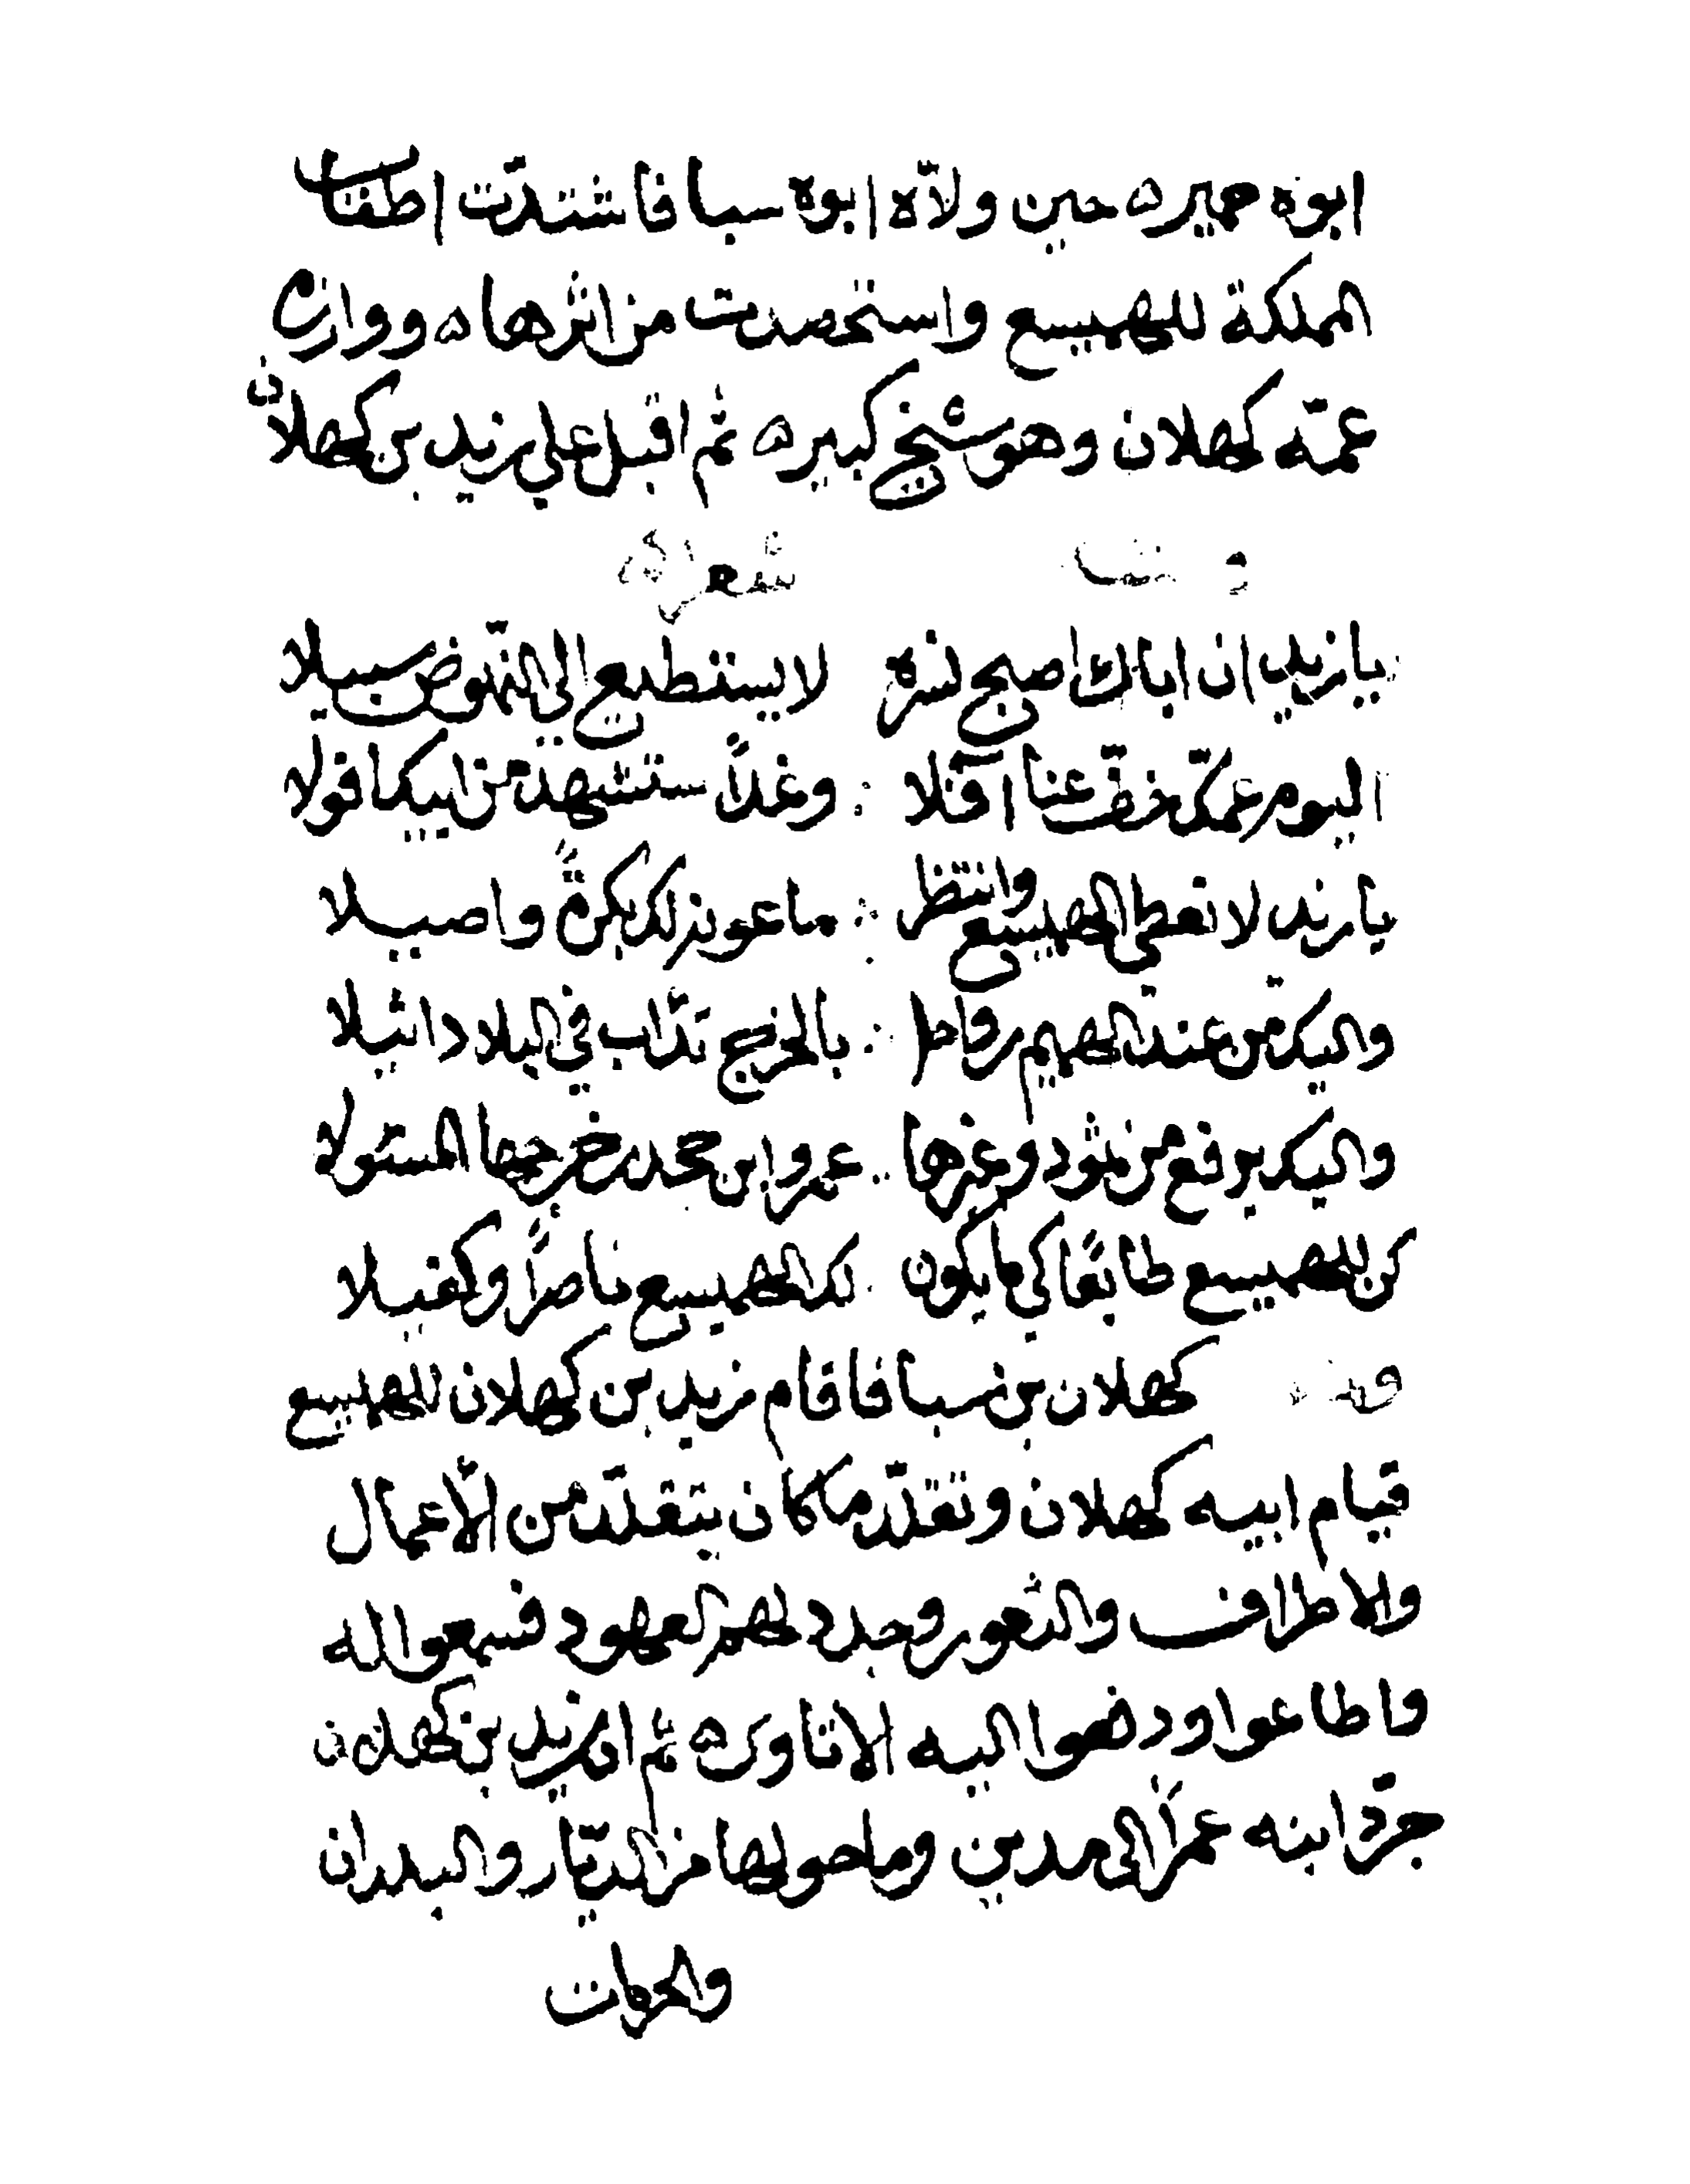 ابوه حمير ه حين ولاّه ابوه سبا فاشتدّت اطناب
المملكة للهميسع واستحصدت من اثرها ه ووازره
عمّه كهلان وهو شيخ كبير ه ثم اقبل علي زيد بن كهلان
شعر
يا زيد ان اباك اصبح نسره لا يستطيع الي النهوض سبيلا
اليوم عمك خفّ عنا آفلا : وغداً ستشهد من ابيك افولا
يا زيد لا تعطي الهميسع وانتظر : ما عوند لك بكرةً واصيلا
واليك من عند : بالخرج تدّاب في البلاد دائبلا
واليك يرفع من ثمود وغيرها عمرو ابن محجد خرجها المسئولا
كن للهميسع طائعًا كي ما يكون لك الهميسع ناصرًا وكفيلا
كهلان بن سبا فاقام زيد بن كهلان للهميسع
قيام ابيه كهلان وتقلّد ما كان يتقلّد من الأعمال
والاطراف والثغور وجدد لهم العهود فسمعوا له
واطاعوا ودفعوا اليه الاتاوى ه ثم ان زيد بن كهلان
جرّد ابنه عمراً الى مدين وما حولها من الديّار والبلدان